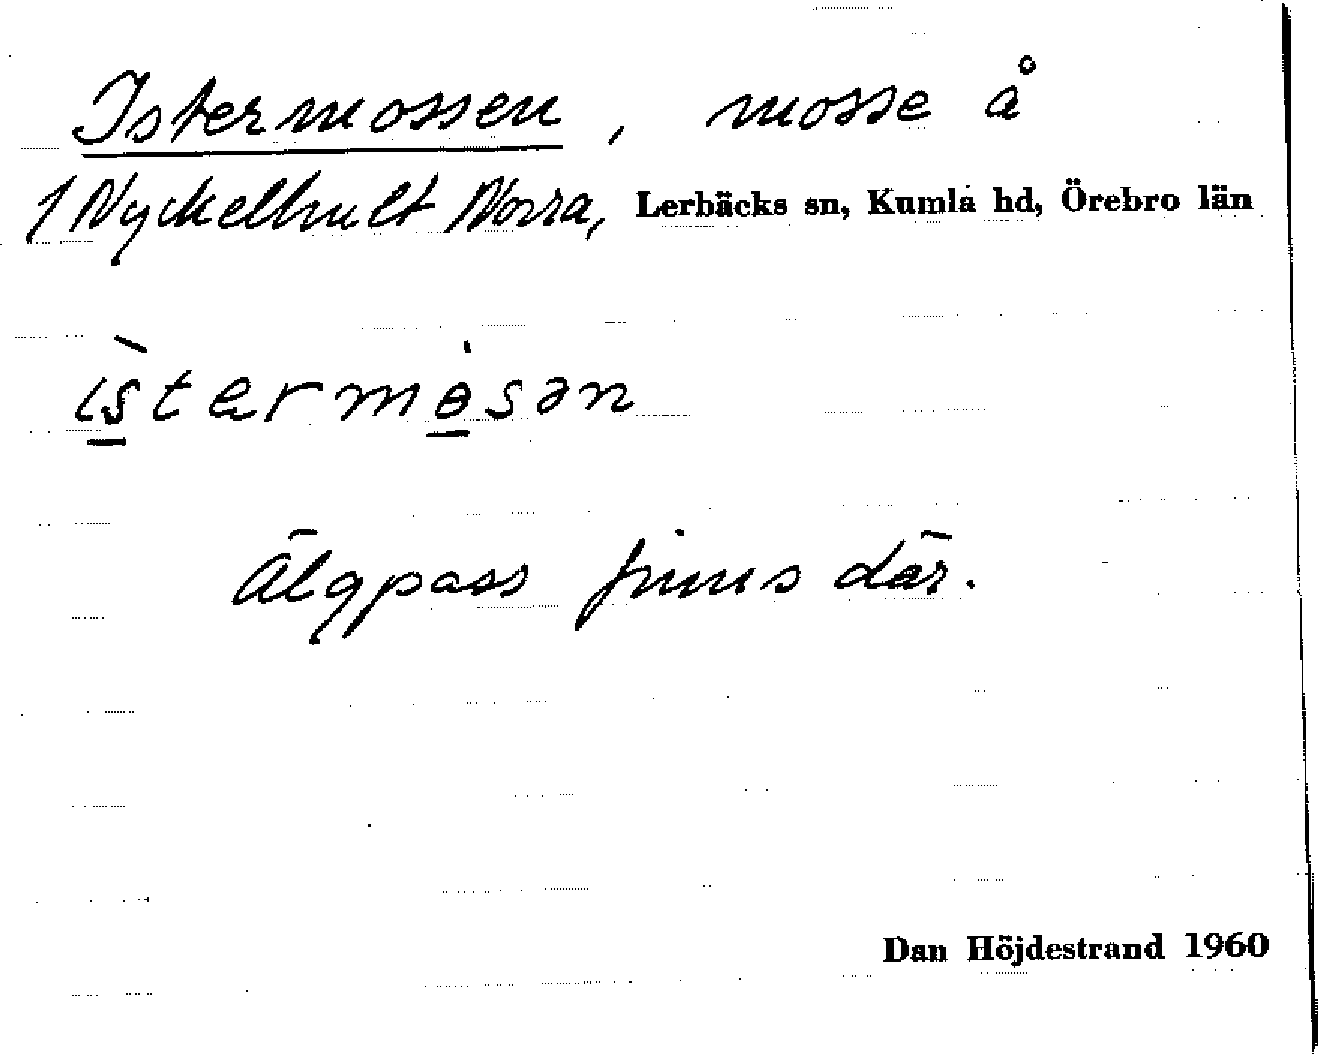 Istermossen, mosse å
1 Nyckelhult Norra, Lerbäcks sn, Kumla hd, Örebro län
ìstermɵ́sən
Älgpass finns där.
Dan Höjdestrand 1960